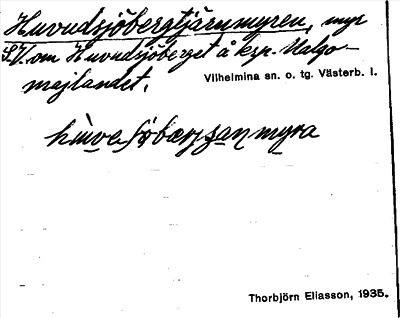 Huvudsjöbergtjärnmyren, myr
S.V. om Huvudsjöberget å krp. Malgo-
majlandet.
Vilhelmina sn. o. tg. Västerb. l.
Thorbjörn Eliasson, 1935.